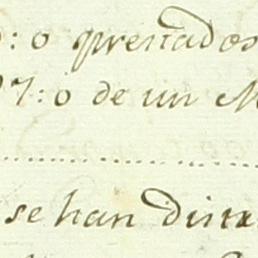 : o prestados
97: o de un M
se han dist